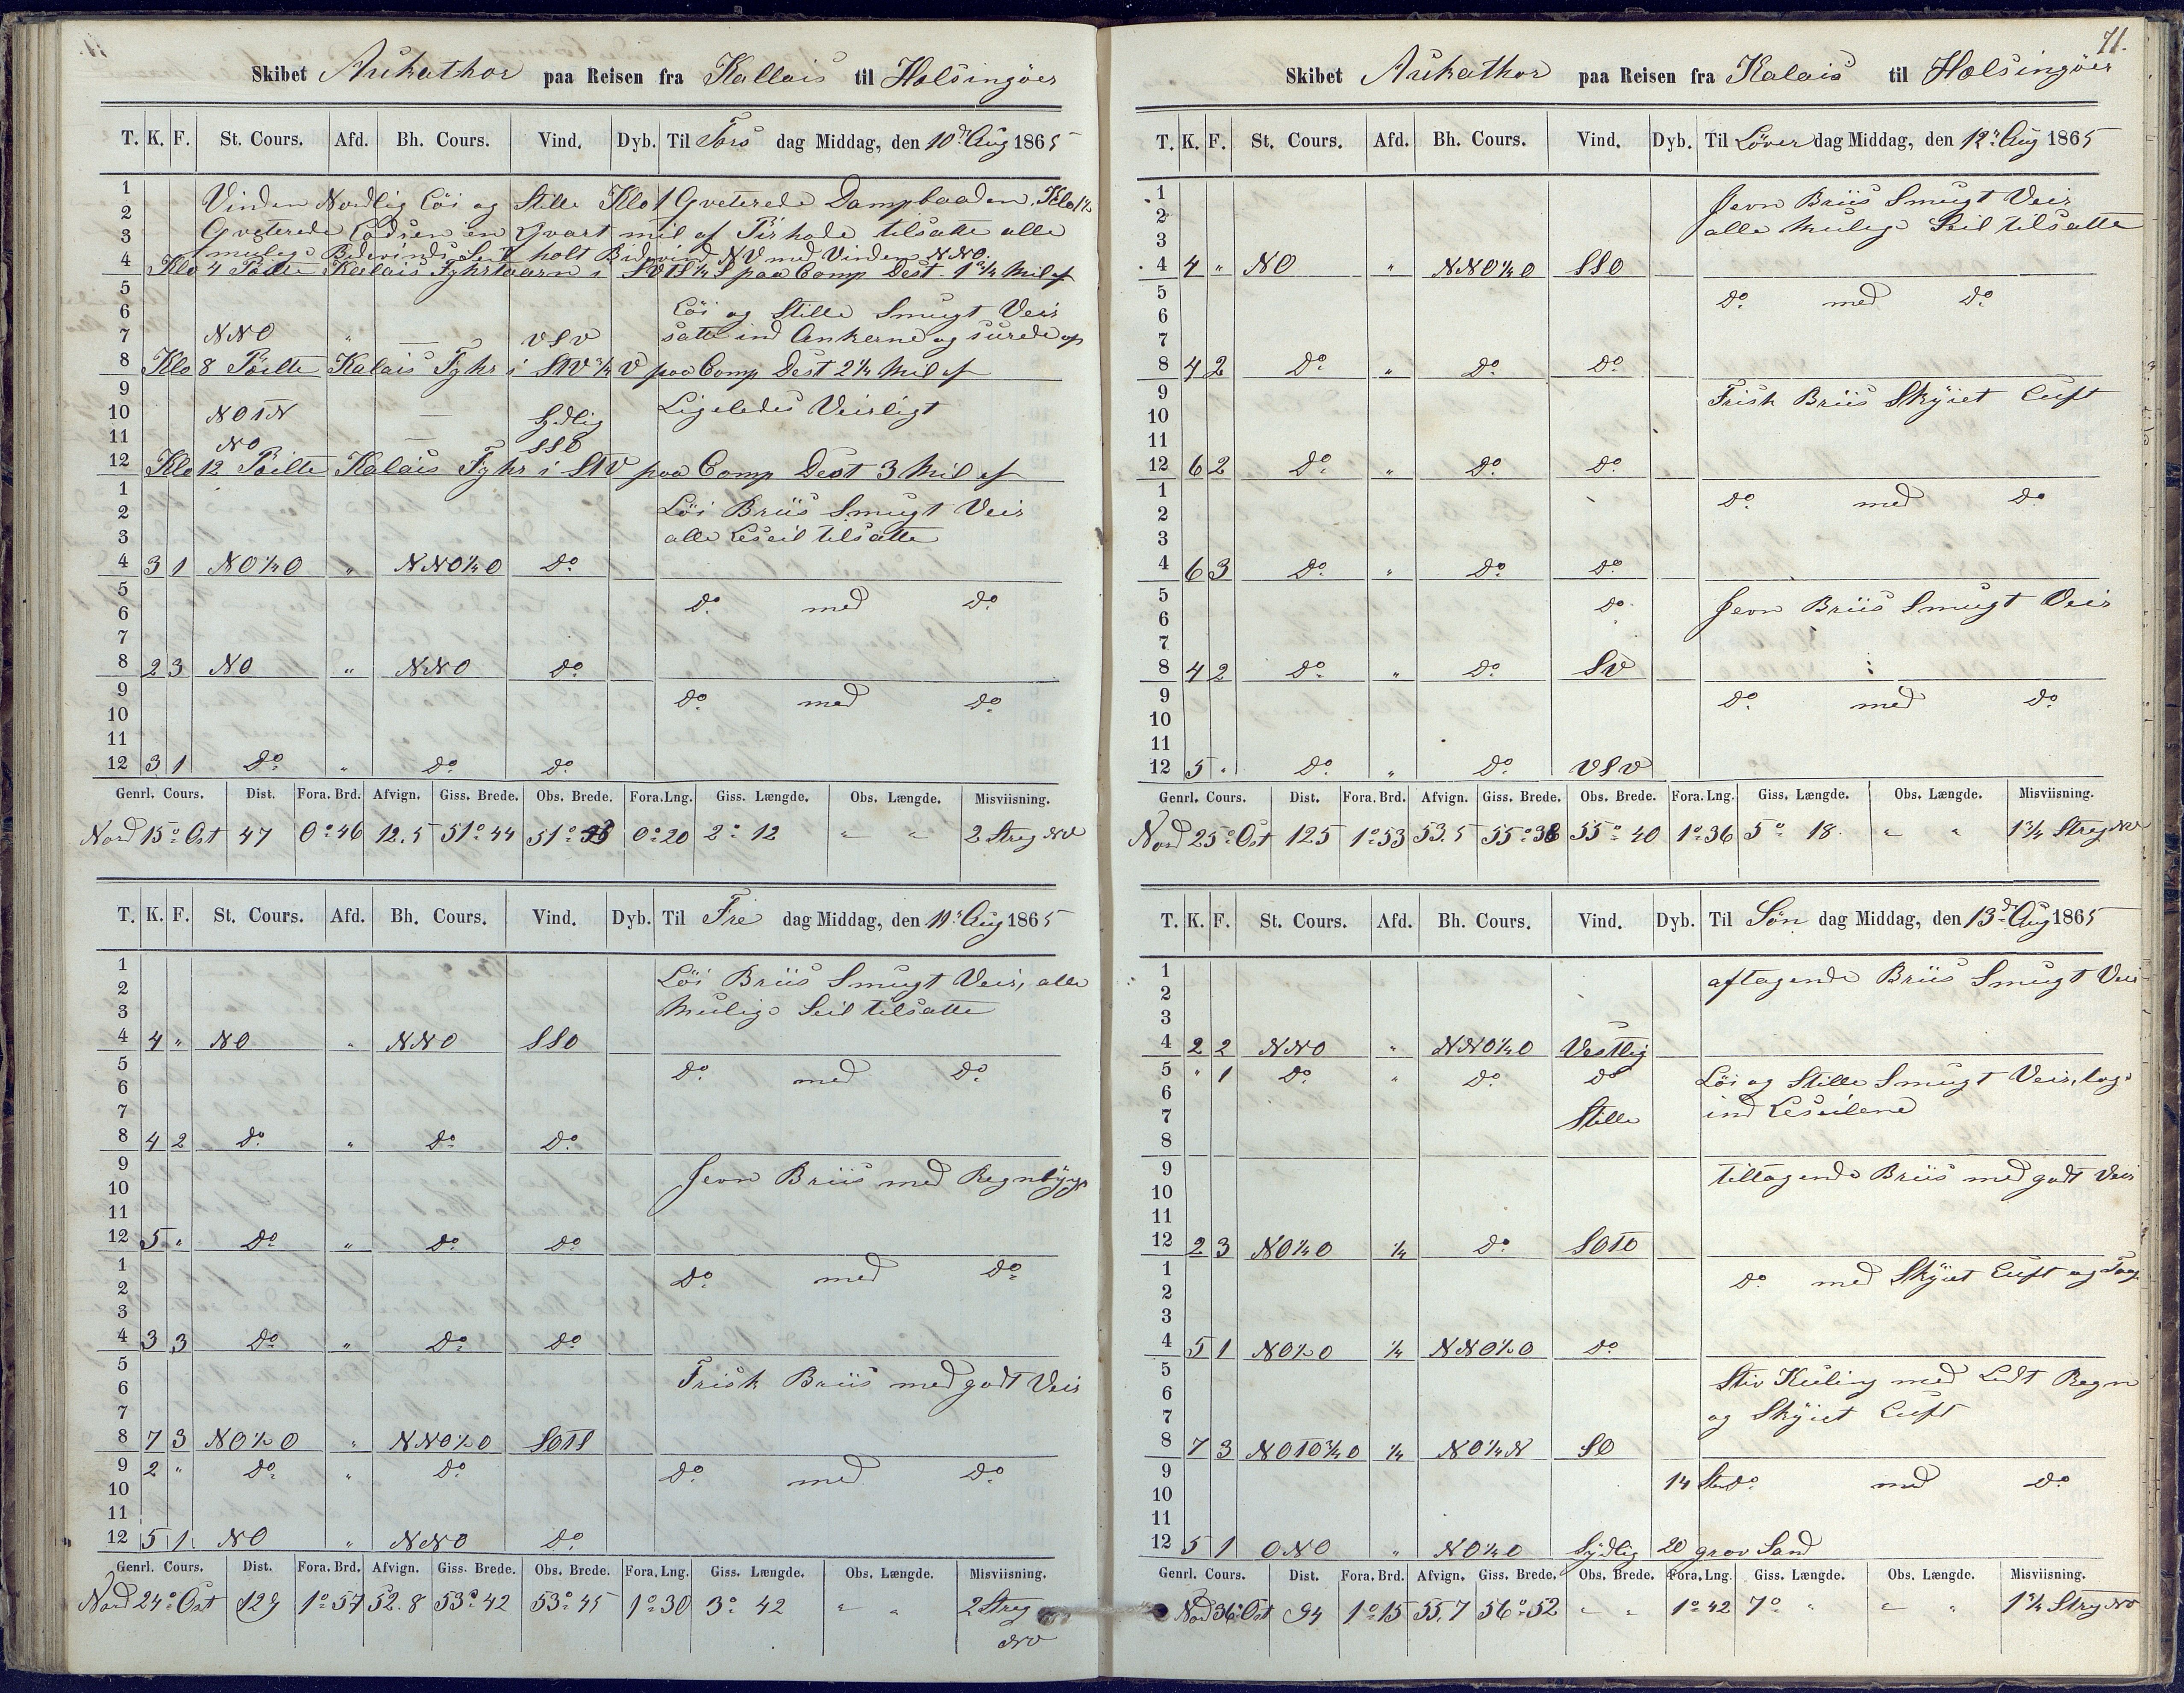 Skibet Aukathor paa Reisen fra Kallais til Helsingöer
T. K. F. St. Cours. Afd. Bh. Cours. Vind. Dyb. Til Tors dag Middag, den 10de Aug 1865
1 Vinden Nordlig Löi og Stille Klo 1 Qveterede Dampbaaden, Klo 1½
2
3 Qveterede Lodsen en Qvart mil af tilsatte alle
mulige Bidevinds Seil holt Bidevind NV med Vinden NNO.
4 Klo 4 Peilte Kalais Fyhrtaarn i paa Comp Dest 1¾ Mil af
5
6 Löi og Stille Smugt Veir
7 NNO " — VSV satte ind Ankerne og surede op
8 Klo 8 Peilte Kalais Fyhr i StV¾V paa Comp Dest 2¼ Mil af
9
10 NOtN — Sydlig Ligeledes Veirligt
11 NO — SSO
12 Klo 12 Peilte Kalais Fyhr i StV paa Comp Dest 3 Mil af
1
2 Löi Briis Smugt Veir
3 alle Leseil tilsatte
4 3 1 NO¼O " NNO¼O Do
5
6 Do med Do
7
8 2 3 NO " NNO Do
9
10 Do med Do
11
12 3 1 Do " Do Do
Genrl. Cours. Dist. Fora. Brd. Afvign. Giss. Brede. Obs. Brede. Fora. Lng. Giss. Længde. Obs. Længde. Misviisning.
Nord 15° Ost 47 0° 46 12.5 51° 44 51° 0° 20 2° 12 " " 2 Streg NV
T. K. F. St. Cours. Afd. Bh. Cours. Vind. Dyb. Til Fre dag Middag, den 11te Aug 1865
1 Löi Briis Smugt Veir, alle
2
3 Mulige Seil tilsatte
4 4 " NO " NNO SSO
5 Do med Do
6
7
8 4 2 Do " Do Do
9 Jevn Briis med Regnbyger
10
11
12 5 " Do " Do Do
1 Do med Do
2
3
4 3 3 Do " Do Do
5
6 Frisk Briis med godt Veir
7
8 7 3 NO½O " NNO½O SOtS
9 2 " Do " Do Do med Do
10
11
12 5 1 NO " NNO Do
Genrl. Cours. Dist. Fora. Brd. Afvign. Giss. Brede. Obs. Brede. Fora. Lng. Giss. Længde. Obs. Længde. Misviisning.
Nord 24° Ost 129 1° 57 52.8 53° 42 53° 45 1° 30 3° 42 " " 2 Streg
NV
71.
Skibet Aukathor paa Reisen fra Kalais til Helsingöer
T. K. F. St. Cours. Afd. Bh. Cours. Vind. Dyb. Til Löver dag Middag, den 12te Aug 1865
1 Jevn Briis Smugt Veir
2 alle Mulige Seil tilsatte
3
4 4 " NO " NNO¼O SSO
5 Do med Do
6
7
8 4 2 Do " Do Do
9 Frisk Briis Skyiet Luft
10
11
12 6 2 Do " Do Do
1 Do med Do
2
3
4 6 3 Do " Do Do
5 Do Jevn Briis Smugt Veir
6
7
8 4 2 Do " Do SV
9 Do med Do
10
11
12 5 " Do " Do VSV
Genrl. Cours. Dist. Fora. Brd. Afvign. Giss. Brede. Obs. Brede. Fora. Lng. Giss. Længde. Obs. Længde. Misviisning.
Nord 25° Ost 125 1° 53 53.5 55° 38 55° 40 1° 36 5° 18 " " 1¾ Streg NV
T. K. F. St. Cours. Afd. Bh. Cours. Vind. Dyb. Til Sön dag Middag, den 13de Aug 1865
1 aftagende Briis Smugt Veir
2
3
4 2 2 NNO " NNO¼O Vestlig
5 " 1 Do " Do Do Löi og Stille Smugt Veir, tog
6
7 Stille ind Leseilene
8
9 tiltagende Briis med godt Veir
10
11
12 2 3 NO¼O ¼ Do SOtO
1 Do med Skyiet Luft og Taag
2
3
4 5 1 NO½O ¼ NNO½O Do
5 Stiv Kuling med Lidt Regn
6
7 og Skyiet Luft
8 7 3 NOtO¾O ¼ NO¼N SO
9 14 Do med Do
10
11
12 5 1 ONO " NO¼O Sydlig 20 grov Sand
Genrl. Cours. Dist. Fora. Brd. Afvign. Giss. Brede. Obs. Brede. Fora. Lng. Giss. Længde. Obs. Længde. Misviisning.
Nord 36° Ost 94 1° 15 55.7 56° 52 " " 1° 42 7° " " " 1¾ Streg NV